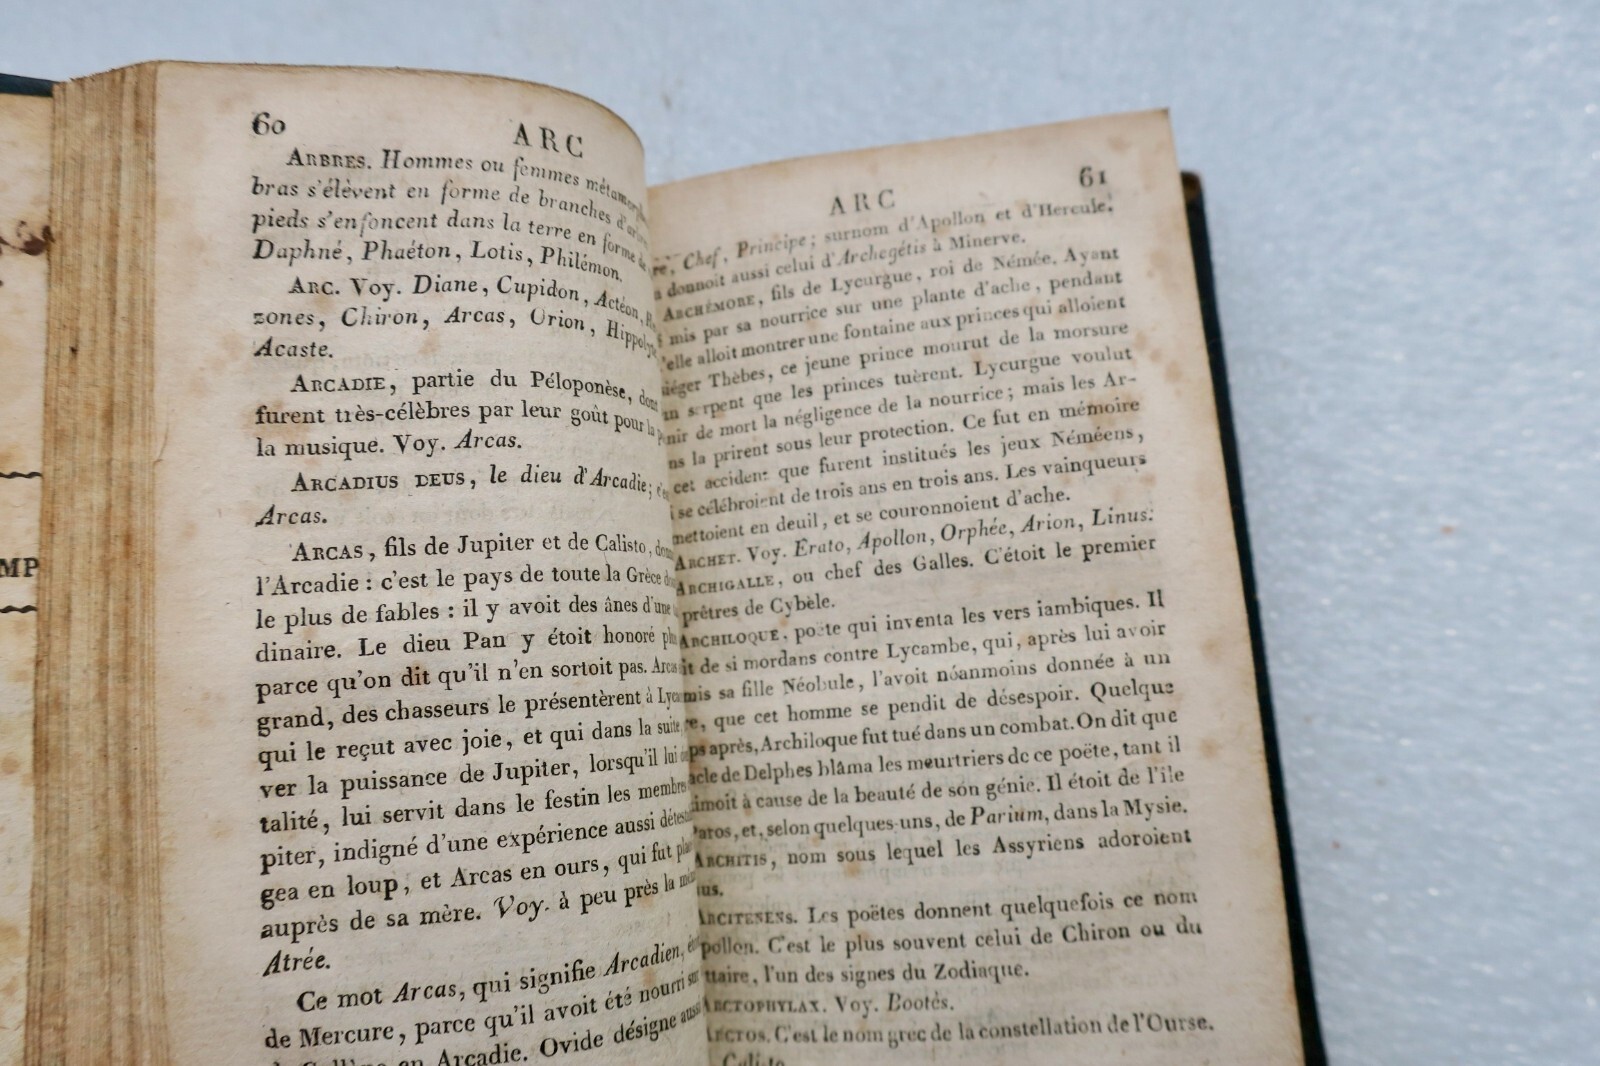 60
ARC
ARBRES. Hommes ou femmes
bras s'élèvent en forme de branches
pieds s'enfoncent dans la terre en forme
Daphné, Phaéton, Lotis, Philémon.
ARC. Voy. Diane, Cupidon, Actéon,
zones, Chiron, Arcas, Orion, Hippolyte
Acaste.
ARCADIE, partie du Péloponèse,
furent très-célèbres par leur goût pour la
la musique. Voy. Arcas.
ARCADIUS DEUS, le dieu d'Arcadie;
Arcas.
ARCAS, fils de Jupiter et de Calisto,
l'Arcadie : c'est le pays de toute la Grèce
le plus de fables : il y avoit des ânes d'une
dinaire. Le dieu Pan y étoit honoré
parce qu'on dit qu'il n'en sortoit pas.
grand, des chasseurs le présentèrent à
qui le reçut avec joie, et qui dans la suite,
ver la puissance de Jupiter, lorsqu'il lui
talité, lui servit dans le festin les
piter, indigné d'une expérience aussi
gea en loup, et Arcas en ours, qui fut
auprès de sa mère. Voy. à peu près la
Atrée.
Ce mot Arcas, qui signifie Arcadien,
de Mercure, parce qu'il avoit été nourri
en Arcadie. Ovide désigne aussi
ARC
61
Chef, Principe; surnom d'Apollon et d'Hercule.
donnoit aussi celui d'Archegétis à Minerve.
ARCHÉMORE, fils de Lycurgue, roi de Némée. Ayant
mis par sa nourrice sur une plante d'ache, pendant
elle alloit montrer une fontaine aux princes qui alloient
Thèbes, ce jeune prince mourut de la morsure
serpent que les princes tuèrent. Lycurgue voulut
de mort la négligence de la nourrice; mais les Ar-
la prirent sous leur protection. Ce fut en mémoire
cet accident que furent institués les jeux Néméens,
se célébroient de trois ans en trois ans. Les vainqueurs
mettoient en deuil, et se couronnoient d'ache.
ARCHET. Voy. Erato, Apollon, Orphée, Arion, Linus.
ARCHIGALLE, ou chef des Galles. C'étoit le premier
prêtres de Cybèle.
ARCHILOQUE, poëte qui inventa les vers iambiques. Il
de si mordans contre Lycambe, qui, après lui avoir
mis sa fille Néobule, l'avoit néanmoins donnée à un
que cet homme se pendit de désespoir. Quelque
après, Archiloque fut tué dans un combat. On dit que
de Delphes blâma les meurtriers de ce poëte, tant il
à cause de la beauté de son génie. Il étoit de l'île
et, selon quelques-uns, de Parium, dans la Mysie.
ARCHITIS, nom sous lequel les Assyriens adoroient
ARCITENENS. Les poëtes donnent quelquefois ce nom
C'est le plus souvent celui de Chiron ou du
l'un des signes du Zodiaque.
ARCTOPHYLAX. Voy. Bootès.
ARCTOS. C'est le nom grec de la constellation de l'Ourse.
Calisto
MP